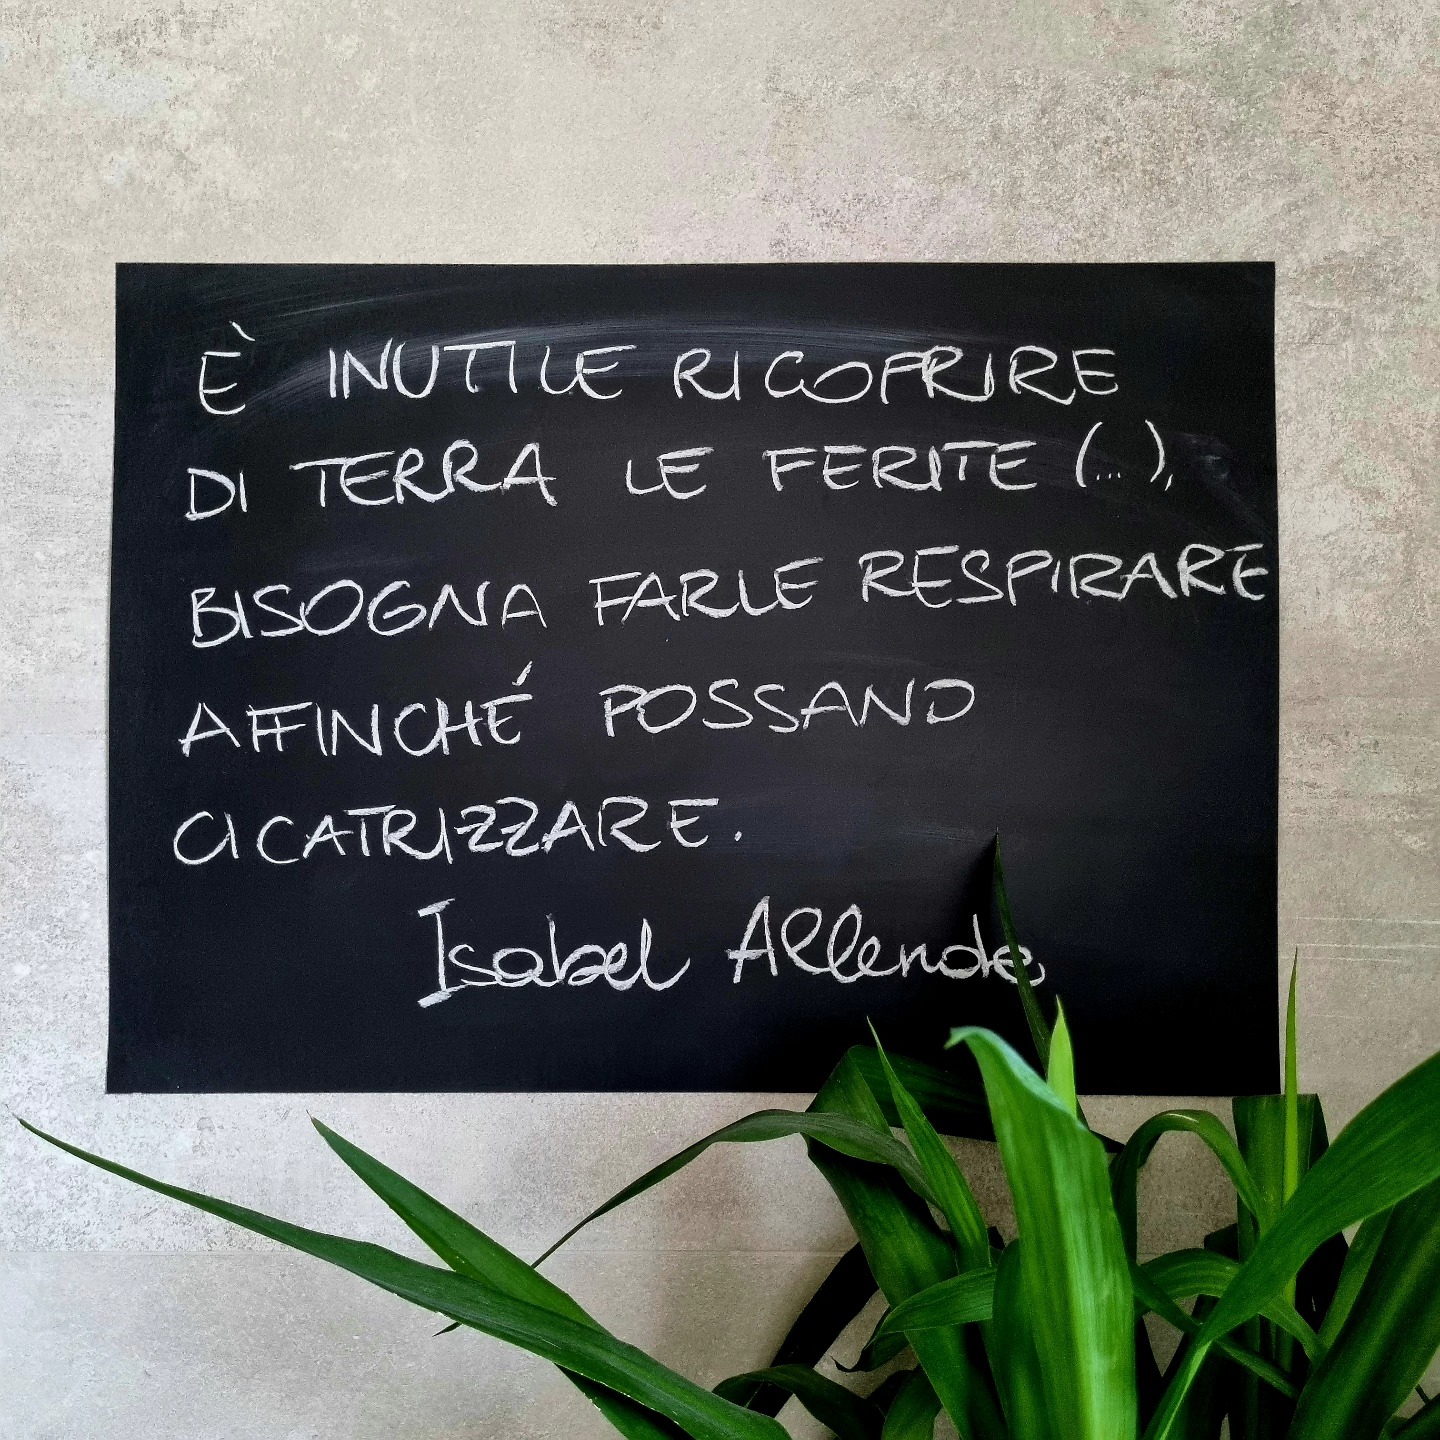 È INUTILE RICOPRIRE
DI TERRA LE FERITE (...),
BISOGNA FARLE RESPIRARE
AFFINCHÉ POSSANO
CICATRIZZARE.
Isabel Allende